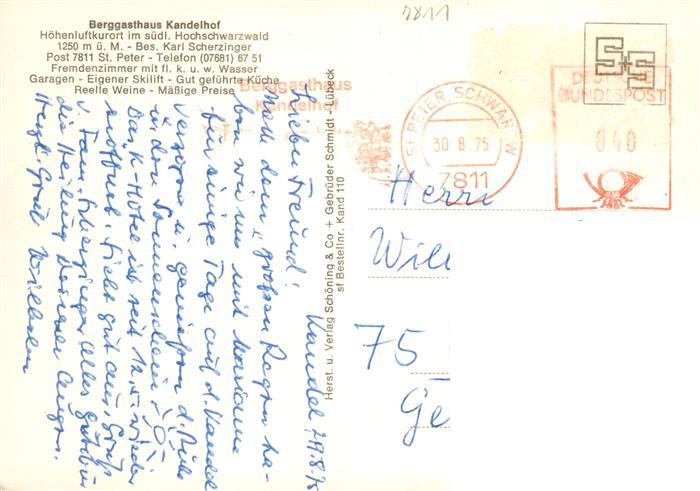 Berggasthaus Kandelhof
Höhenluftkurort im südl. Hochschwarzwald
1250 m ü. M. - Bes. Karl Scherzinger
Post 7811 St. Peter - Telefon (07681) 67 51
Fremdenzimmer mit fl. k. u. w. Wasser
Garagen - Eigener Skilift - Gut geführte Küche
Reelle Weine - Mäßige Preise
7811
S+S
Berggasthaus
Kandelhof
ST. PETER, SCHWARZW
30 8.75
7811
DEUTSCHE
BUNDESPOST
040
Kandel, 29.8.75
Liebe Freund!
Nach dem "großen Regen" ha-
ben wir uns mit Marianne
für einige Tage auf d. Kandel
verzogen u. genießen d. Ruhe
in den Sonnenschein!
Das K-Hotel ist seit 12.5. wieder
eröffnet. Sieht gut aus. Gruß
v. Fam. Scherzinger. Alles Gute für
die Heilung Deiner Augen.
Herzl. Gruß Wilhelm
Herst. u. Verlag Schöning & Co + Gebrüder Schmidt - Lübeck
sf Bestellnr. Kand 110
Herrn
Will
75
Ge